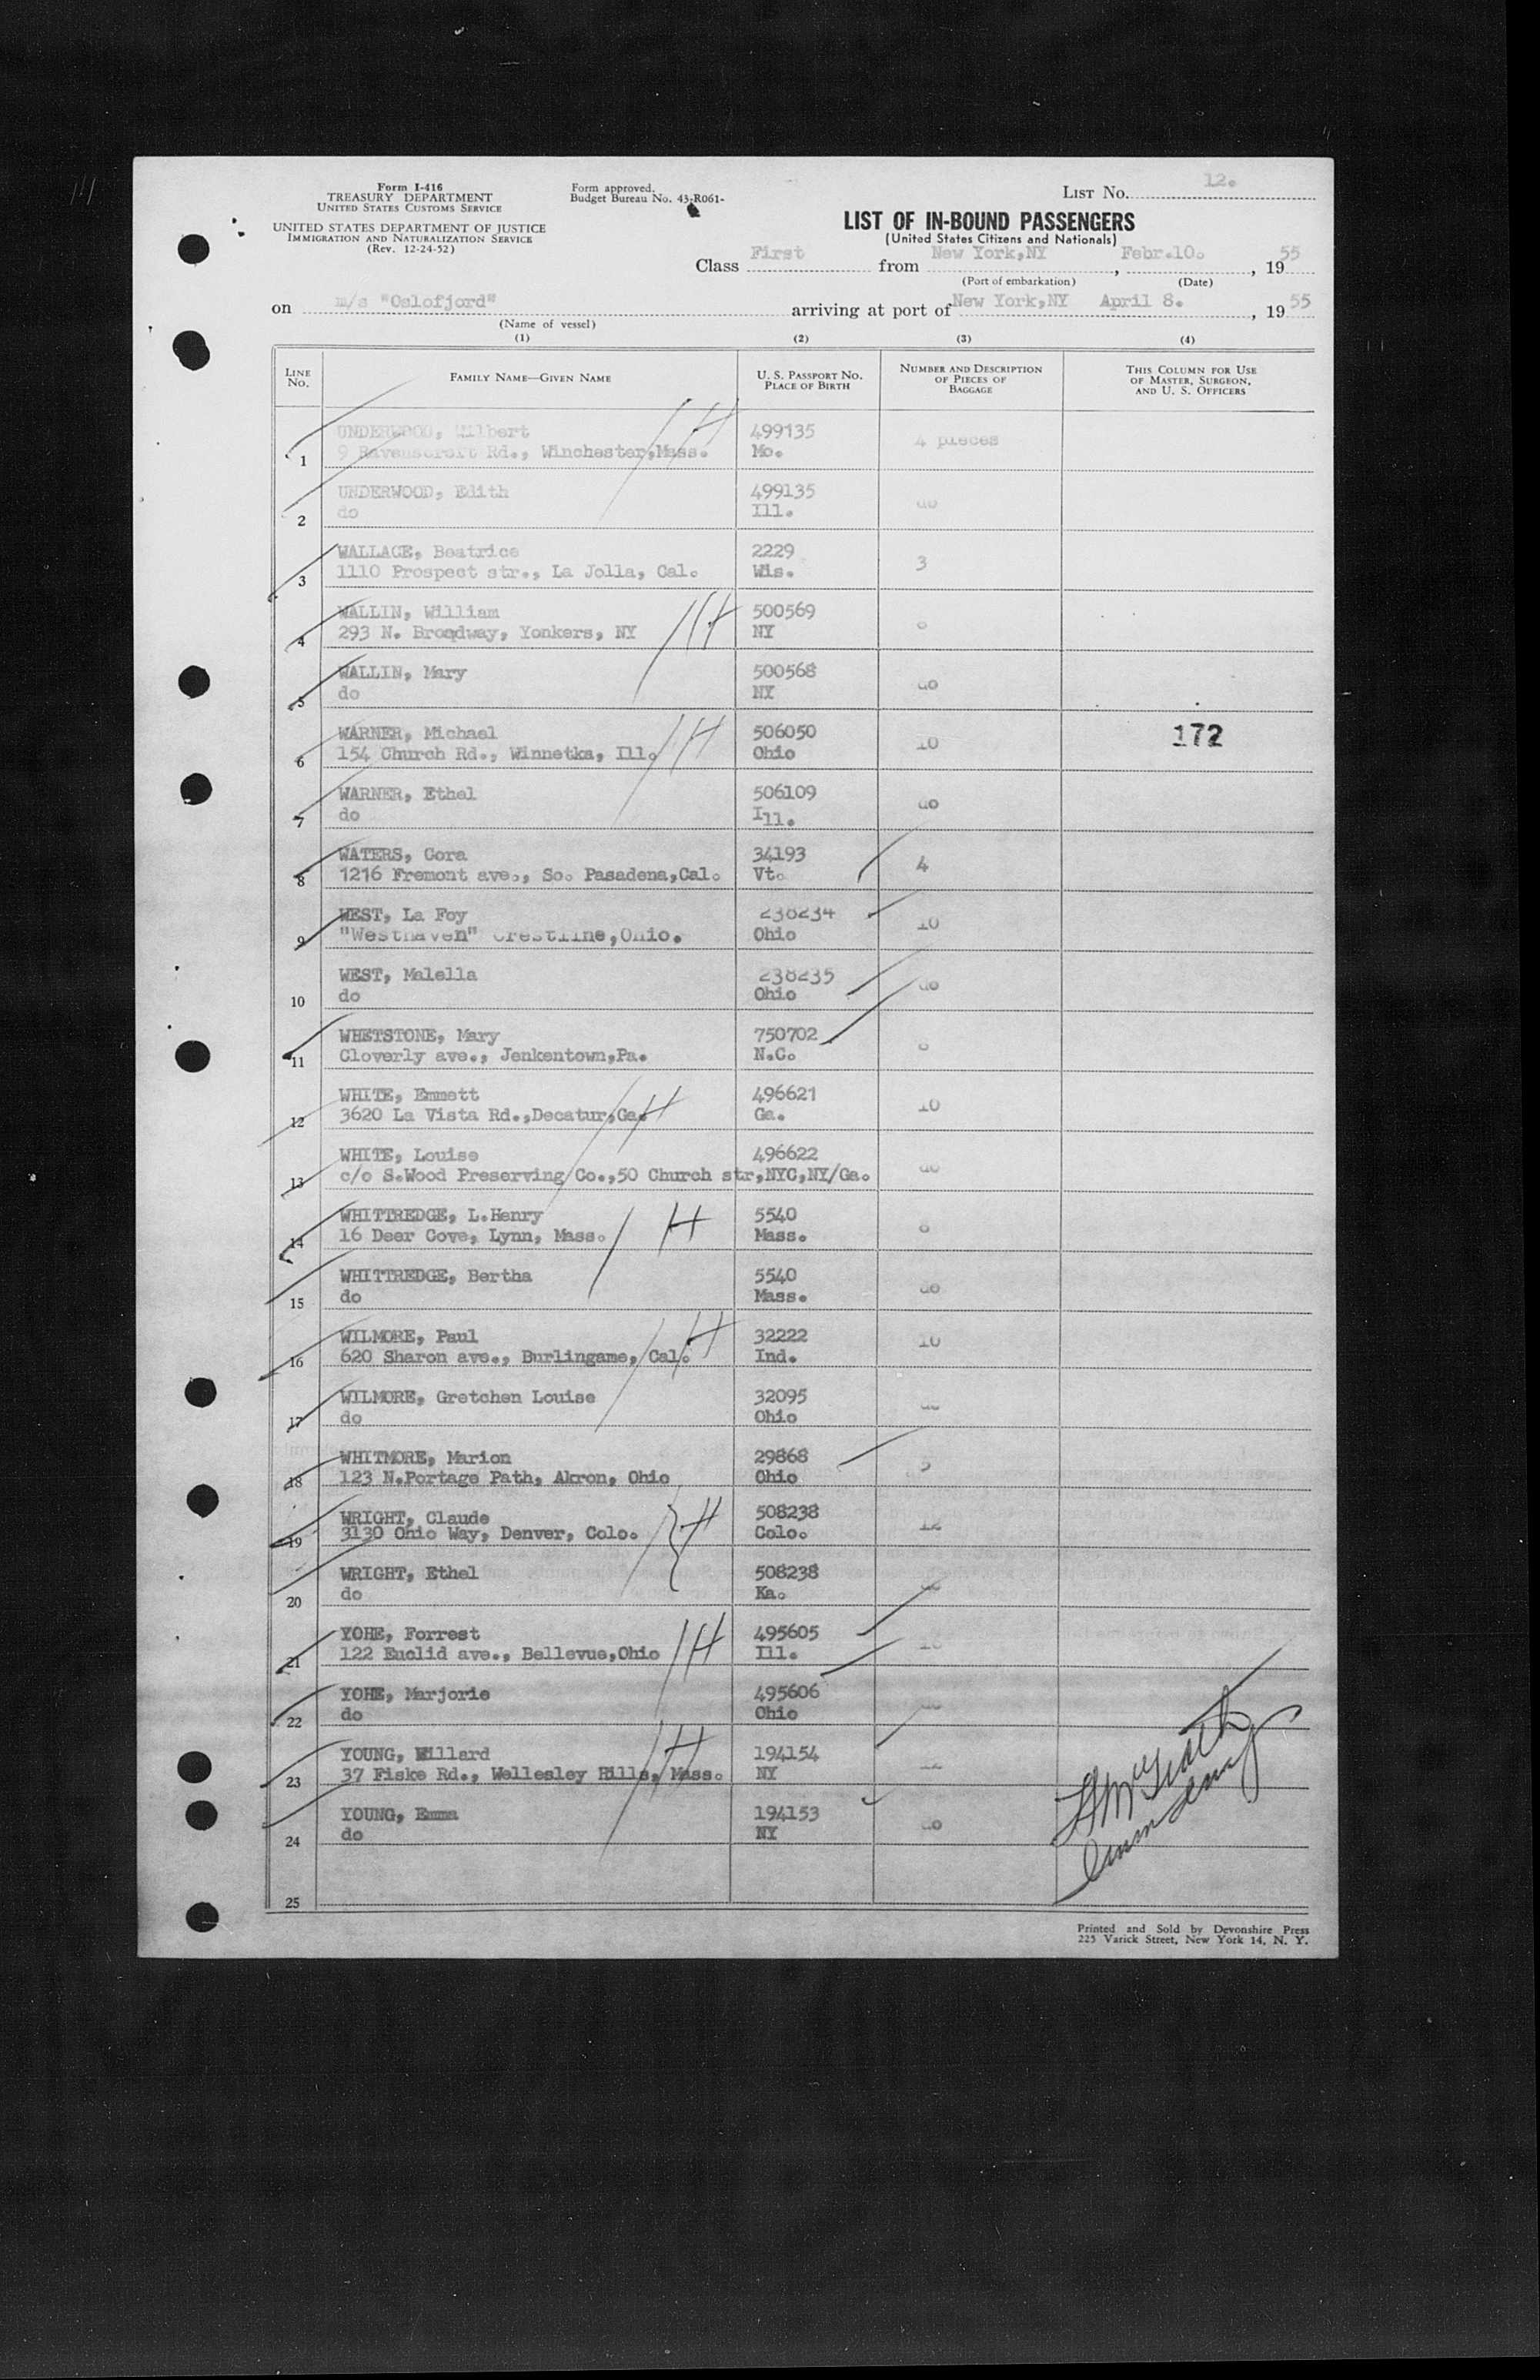 Form I-416
TREASURY DEPARTMENT
UNITED STATES CUSTOMS SERVICE
UNITED STATES DEPARTMENT OF JUSTICE
IMMIGRATION AND NATURALIZATION SERVICE
(Rev. 12-24-52)
Form approved.
Budget Bureau No. 43-R061-
LIST No. 12.
LIST OF IN-BOUND PASSENGERS
(United States Citizens and Nationals)
Class First from New York,NY, Febr.10. , 19 55
(Port of embarkation) (Date)
on m/s "Oslofjord" arriving at port of New York,NY April 8. , 19 55
(Name of vessel)
(1) (2) (3) (4)
LINE No. FAMILY NAME—GIVEN NAME U. S. PASSPORT NO. PLACE OF BIRTH NUMBER AND DESCRIPTION OF PIECES OF BAGGAGE THIS COLUMN FOR USE OF MASTER, SURGEON, AND U. S. OFFICERS
UNDERWOOD, Wilbert 499135 4 pieces
1 9 Ravenscroft Rd., Winchester,Mass. Mo.
UNDERWOOD, Edith 499135 do
2 do Ill.
WALLACE, Beatrice 2229 3
3 1110 Prospect str., La Jolla, Cal. Wis.
WALLIN, William 500569
4 293 N. Broadway, Yonkers, NY NY
WALLIN, Mary 500568 do
5 do NY
WARNER, Michael 506050 10 172
6 154 Church Rd., Winnetka, Ill. Ohio
WARNER, Ethel 506109 do
7 do Ill.
WATERS, Cora 34193 4
8 1216 Fremont ave., So. Pasadena,Cal. Vt.
WEST, La Foy 238234 10
9 "Westhaven" Crestline,Ohio. Ohio
WEST, Malella 238235 do
10 do Ohio
WHETSTONE, Mary 750702
11 Cloverly ave., Jenkentown,Pa. N.C.
WHITE, Emmett 496621 10
12 3620 La Vista Rd.,Decatur,Ga. Ga.
WHITE, Louise 496622 do
13 c/o S.Wood Preserving Co.,50 Church str,NYC,NY/Ga.
WHITTREDGE, L.Henry 5540
14 16 Deer Cove, Lynn, Mass. Mass.
WHITTREDGE, Bertha 5540 do
15 do Mass.
WILMORE, Paul 32222 10
16 620 Sharon ave., Burlingame, Cal. Ind.
WILMORE, Gretchen Louise 32095 do
17 do Ohio
WHITMORE, Marion 29868
18 123 N.Portage Path, Akron, Ohio Ohio
WRIGHT, Claude 508238 12
19 3130 Ohio Way, Denver, Colo. Colo.
WRIGHT, Ethel 508238 do
20 do Ka.
YOHE, Forrest 495605
21 122 Euclid ave., Bellevue,Ohio Ill.
YOHE, Marjorie 495606 do
22 do Ohio
YOUNG, Willard 194154 12
23 37 Fiske Rd., Wellesley Hills, Mass. NY
YOUNG, Emma 194153 do
24 do NY
25
Printed and Sold by Devonshire Press
225 Varick Street, New York 14, N. Y.